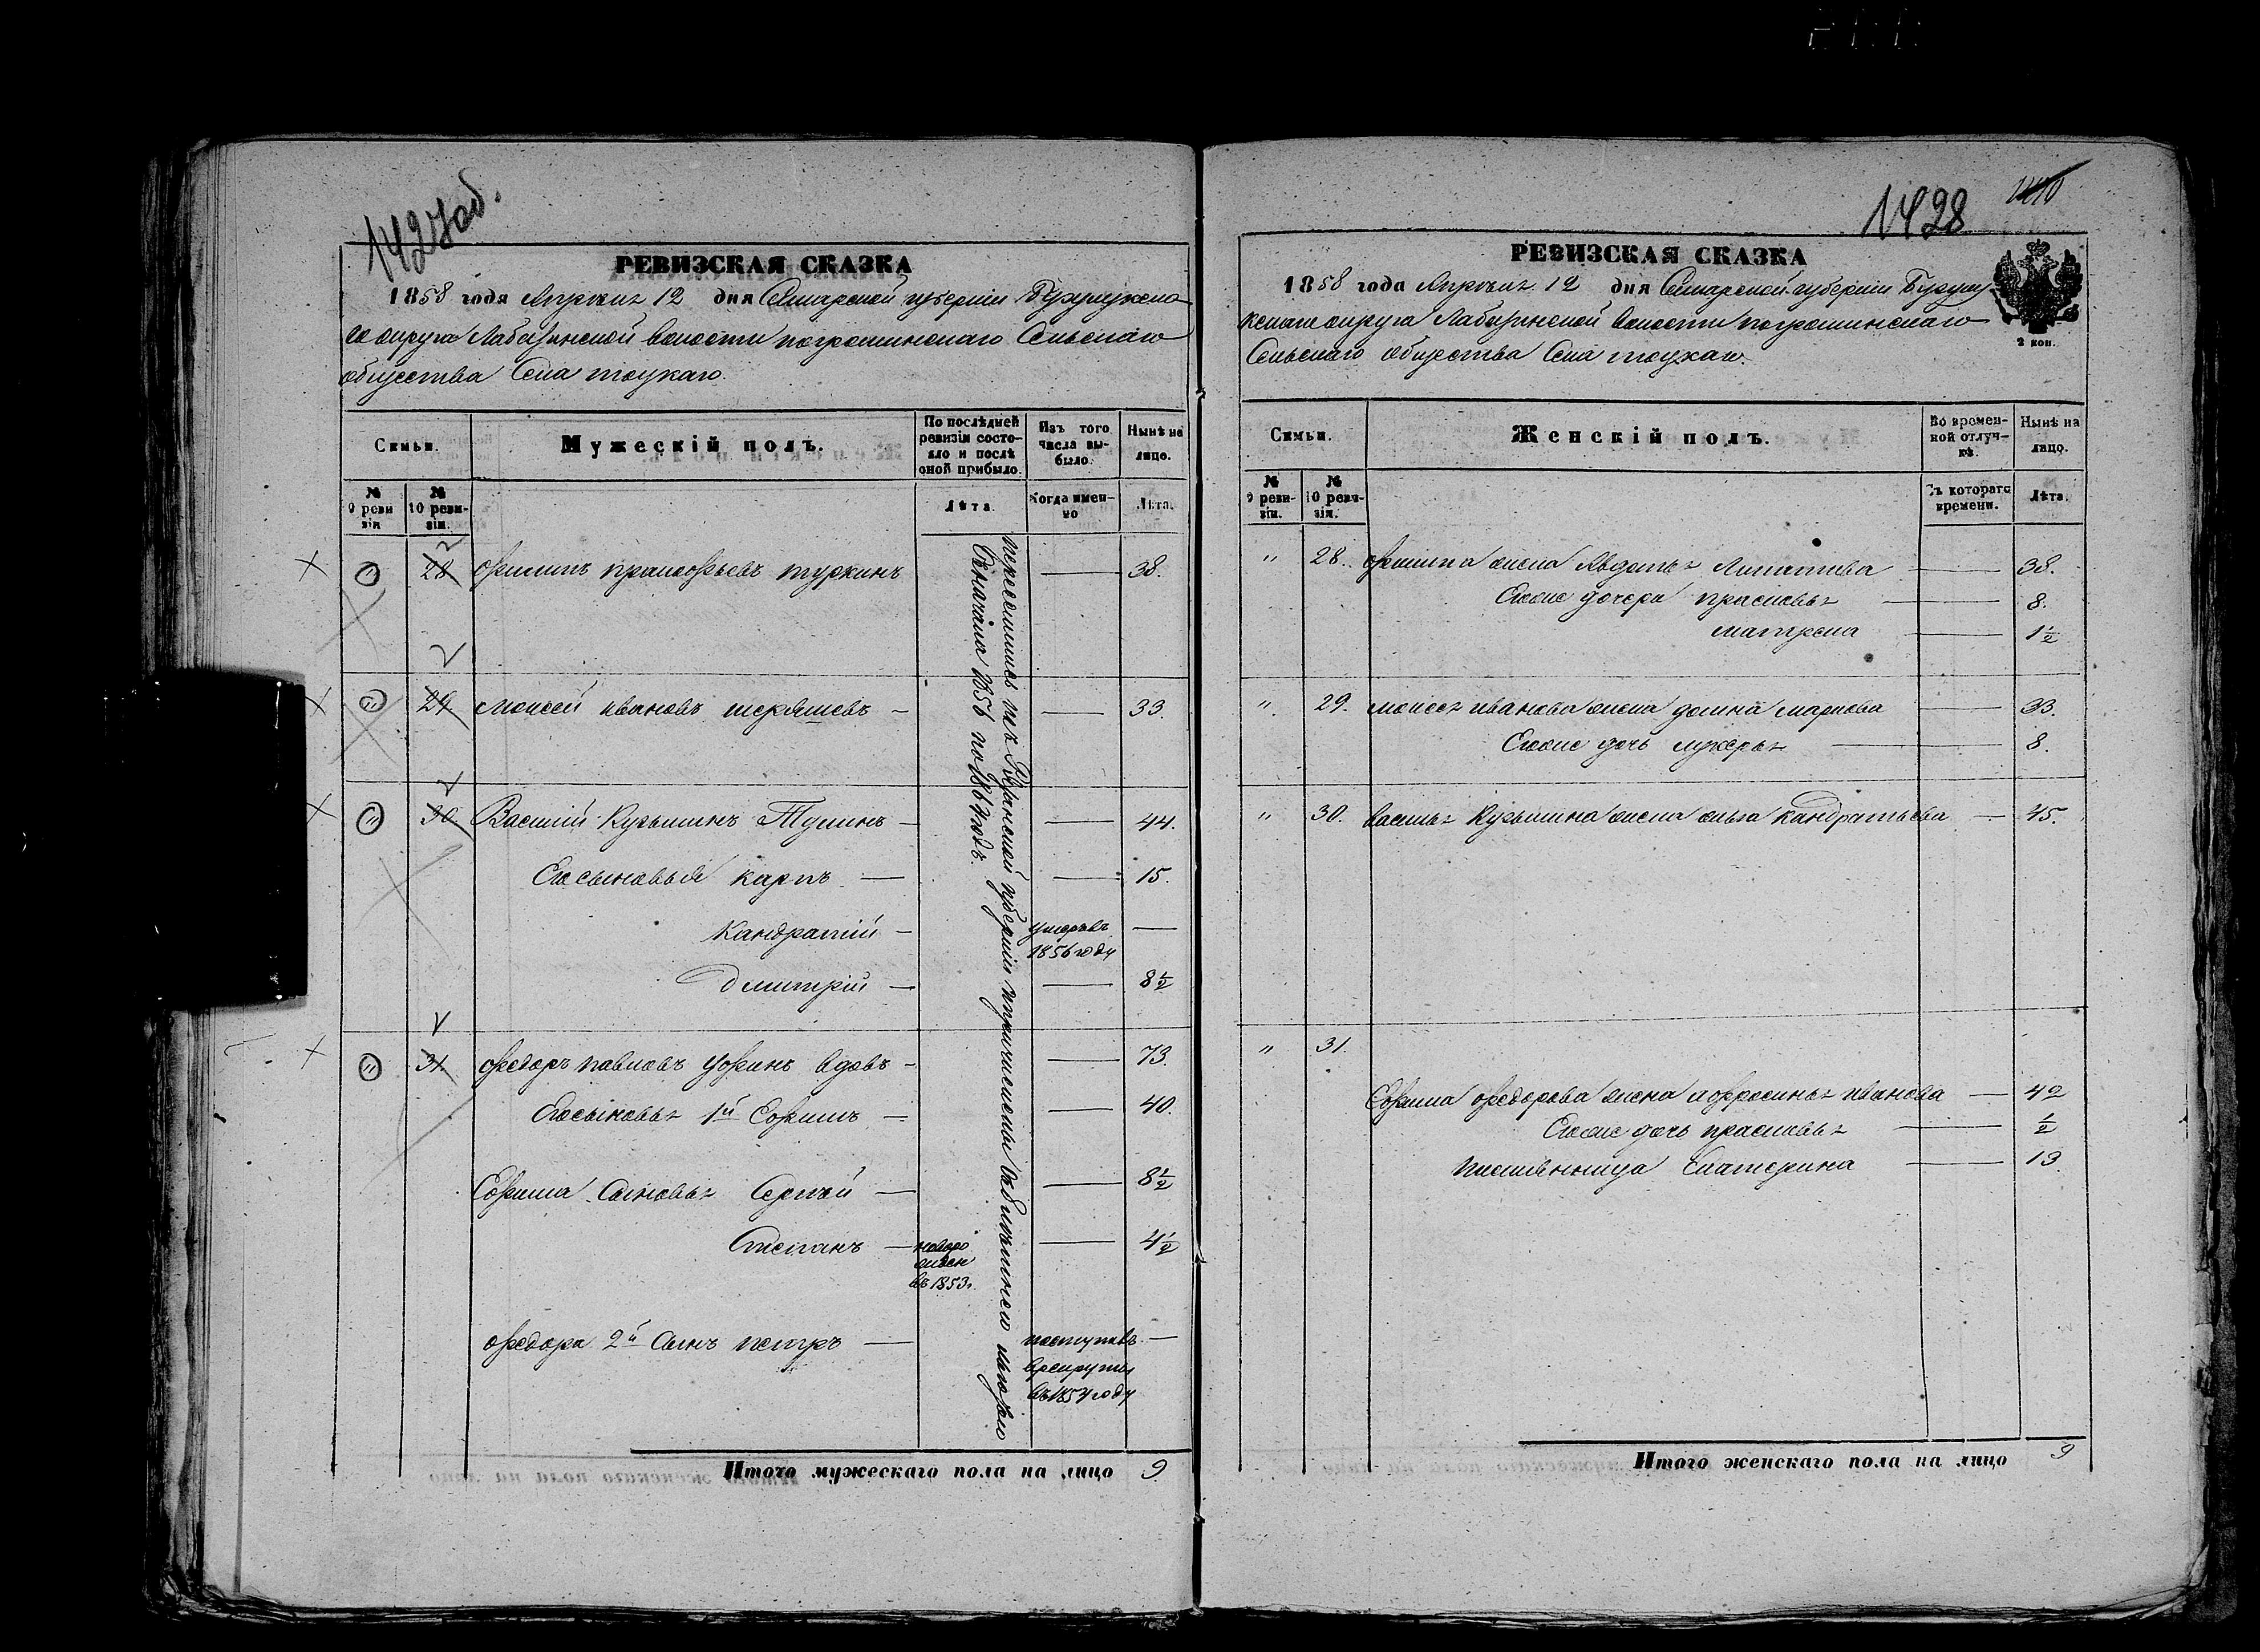 1427 об.
РЕВИЗСКАЯ СКАЗКА
1858 года Апреля 12 дня Самарской губернии Бузулукска
го округа Лабазинской волости погроминскаго Сельскаго
общества Села тоцкаго.
Семьи.
Мужескій полъ.
По послѣдней ревизіи состояло и послѣ оной прибыло.
Изъ того числа выбыло.
Нынѣ на лицо.
№ 9 ревизіи
№ 10 ревизіи.
Лѣта.
Когда именно
Лѣта.
28 Филипъ Туркинъ 38.
29. Моисей ивановъ 33.
30. Василий Кузьминъ 44.
Его сыновья карпъ 15.
Кандратий умеръ въ 1856 году
дмитрій 8½
31 Федоръ павловъ вдовъ 73.
Его сыновья 1й Ефимъ 40.
Ефима Сыновья Сергей 8½
Степанъ новорожден въ 1853. 4½
Федора 2й Сынъ петръ поступивъ в рекруты въ 1854 году
переселились изъ Рязанской губерніи
Итого мужескаго пола на лицо 9.
1428
РЕВИЗСКАЯ СКАЗКА
1858 года Апреля 12 дня Самарской губернии Бузулу
кскаго округа Лабазинской волости погроминскаго
Сельскаго общества Села тоцкаго.
2 коп.
Семьи.
Женскій полъ.
Во временной отлучкѣ.
Нынѣ на лицо.
№ 9 ревизіи.
№ 10 ревизія.
Съ котораго времени.
Лѣта.
" 28. Филипа жена Авдотья 38.
Ево же дочери прасковья 8.
матрена 1½
". 29. моисея иванова жена домна маркова 33.
Ево же дочь лукерья 8.
" 30. василья Кузьмина жена ольга Кандратьева 45.
" 31.
Ефима федорова жена иванова 42
Ево же дочь прасковья ½
племянница Екатерина 13.
Итого женскаго пола на лицо 9